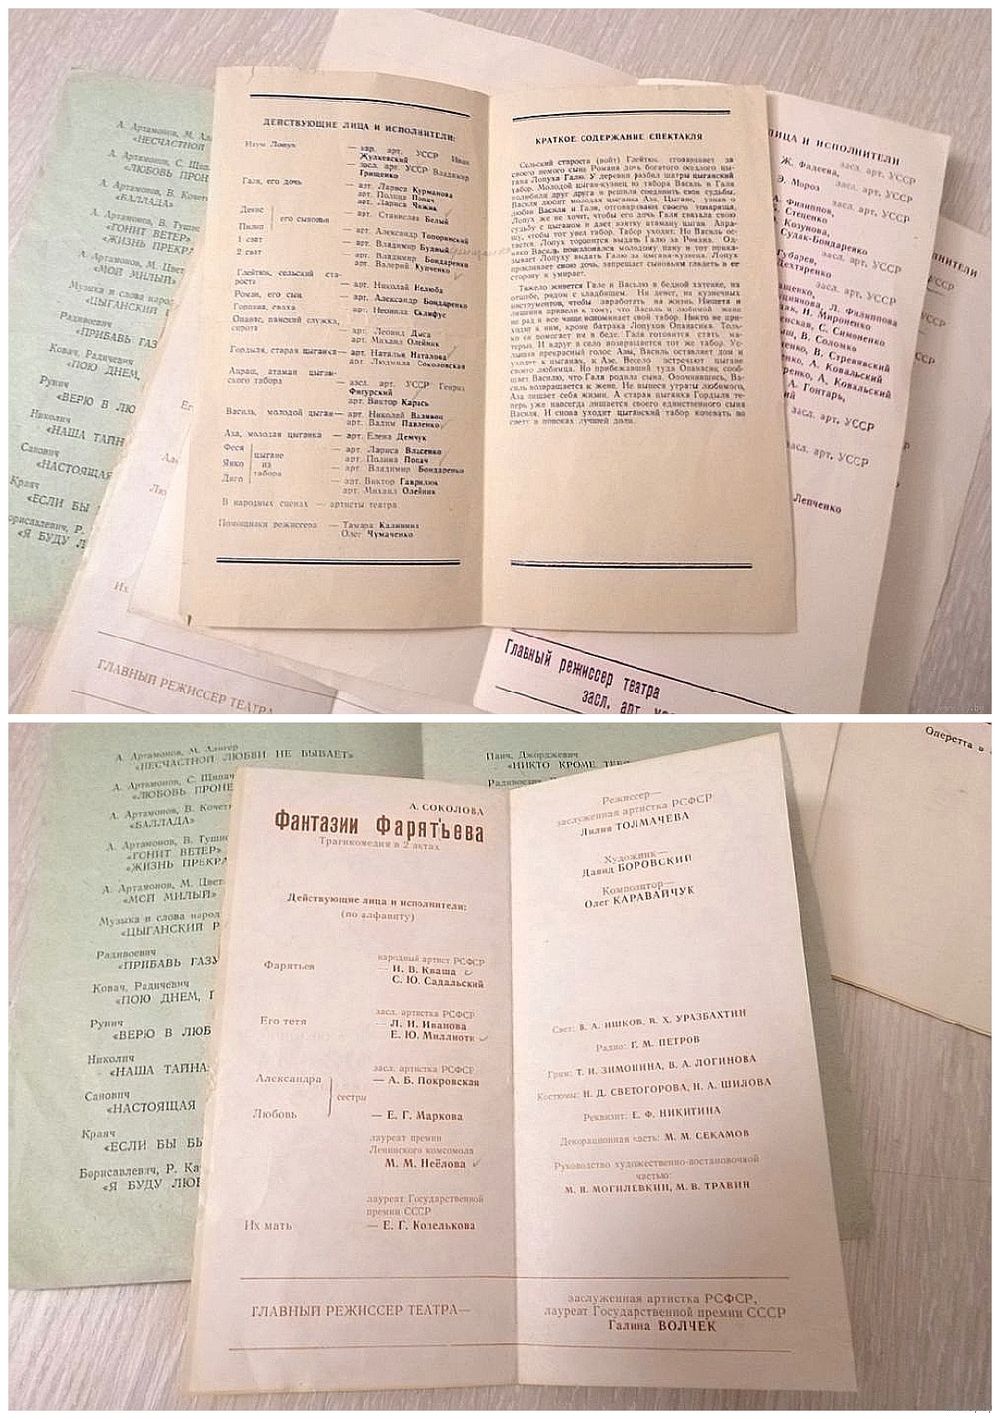 ДЕЙСТВУЮЩИЕ ЛИЦА И ИСПОЛНИТЕЛИ:
— нар. арт. УССР Иван
Жулкевский
— засл. арт. УССР Владимир
Грищенко
Галя, его дочь — арт. Лариса Курманова
арт. Полина Попач
арт. Лариса Чижик
Денис
его сыновья — арт. Станислав Белый
Пилип — арт. Александр Топоринский
1 сват — арт. Владимир Будный
2 сват — арт. Владимир Бондаренко
арт. Валерий Купченко
Глейтюк, сельский ста-
роста — арт. Николай Нелюба
Роман, его сын — арт. Александр Бондаренко
Горпина, сваха — арт. Неонила Склифус
Опанас, панский служка,
сирота — арт. Леонид Дыса
арт. Михаил Олейник
Гордыля, старая цыганка — арт. Наталья Наталова
арт. Людмила Соколовская
Апраш, атаман цыган-
ского табора — засл. арт. УССР Генрих
Фигурский
арт. Виктор Карась
Василь, молодой цыган — арт. Николай Валявин
арт. Вадим Павленко
Аза, молодая цыганка — арт. Елена Демчук
Феся цыгане — арт. Лариса Власенко
арт. Полина Попач
Янко из табора — арт. Владимир Бондаренко
Диго — арт. Виктор Гаврилюк
арт. Михаил Олейник
В народных сценах — артисты театра
Помощники режиссера — Тамара Калинина
Олег Чумаченко
КРАТКОЕ СОДЕРЖАНИЕ СПЕКТАКЛЯ
Сельский староста (войт) Глейтюк, сговаривает за
своего немого сына Романа дочь богатого оседлого цы-
гана Лопуха Галю. У деревни разбил шатры цыганский
табор. Молодой цыган-кузнец из табора Василь и Галя
полюбили друг друга и решили соединить свои судьбы.
Василя любит молодая цыганка Аза. Цыгане, узнав о
любви Василя и Гали, отговаривают своего товарища.
Лопух же не хочет, чтобы его дочь Галя связала свою
судьбу с цыганом и дает взятку атаману цыган. Апра-
шу, чтобы тот увел табор. Табор уходит. Но Василь ос-
тается. Лопух торопится выдать Галю за Романа. Од-
нако Василь пожаловался молодому пану и тот прика-
зывает Лопуху выдать Галю за цыгана-кузнеца. Лопух
проклинает свою дочь, запрещает сыновьям глядеть в ее
сторону и умирает.
Тяжело живется Гале и Василю в бедной хатенке, на
отшибе, рядом с кладбищем. Ни денег, ни кузнечных
инструментов, чтобы заработать на жизнь. Нищета и
лишения привели к тому, что Василь и любимой жене
не рад и все чаще вспоминает свой табор. Никто не при-
ходит к ним, кроме батрака Лопухов Опанаса. Толь-
ко он помогает им в беде. Галя готовится стать ма-
терью. И вдруг в село возвращается тот же табор. Ус-
лышав прекрасный голос Азы, Василь оставляет дом и
уходит к цыганам, к Азе. Весело встречают цыгане
своего любимца. Но прибежавший туда Опанас сооб-
щает Василю, что Галя родила сына. Опомнившись, Ва-
силь возвращается к жене. Не вынеся утраты любимого,
Аза лишает себя жизни. А старая цыганка Гордыля те-
перь уже навсегда лишается своего единственного сына
Василя. И снова уходит цыганский табор кочевать по
свету в поисках лучшей доли.
ЛИЦА И ИСПОЛНИТЕЛИ
засл. арт. УССР
Ж. Фадеева,
засл. арт. УССР
Э. Мороз
А. Филиппов,
Стеценко
Козунова,
Судак-Бондаренко
засл. арт. УССР
Губарев,
Дехтяренко
засл. арт. УССР
Л. Филиппова
И. Мироненко
С. Симоненко
В. Соломко
В. Стревявский
А. Ковальский
А. Ковальский
А. Гонтарь,
засл. арт. УССР
засл. арт. УССР
Лепченко
Главный режиссер театра
засл. арт.
ГЛАВНЫЙ РЕЖИССЕР ТЕАТРА
А. Артамонов, М. Алигер
«НЕСЧАСТНОЙ ЛЮБВИ НЕ БЫВАЕТ»
А. Артамонов, С. Щипач
«ЛЮБОВЬ ПРОНЕ
А. Артамонов, В. Кочет
«БАЛЛАДА»
А. Артамонов, В. Тушн
«ГОНИТ ВЕТЕР»
«ЖИЗНЬ ПРЕКРА
А. Артамонов, М. Цвет
«МОЙ МИЛЫЙ»
Музыка и слова народ
«ЦЫГАНСКИЙ Р
Радивоевич
«ПРИБАВЬ ГАЗУ
Ковач, Радичевич
«ПОЮ ДНЕМ, Г
Рунич
«ВЕРЮ В ЛЮБ
Николич
«НАША ТАЙНА
Санович
«НАСТОЯЩАЯ
Краяч
«ЕСЛИ БЫ БЫ
Борисавлевич, Р. Ка
«Я БУДУ ЛЮБ
Панч, Джорджевич
«НИКТО КРОМЕ ТЕБЯ
Оперетта в
А. СОКОЛОВА
Фантазии Фарятьева
Трагикомедия в 2 актах
Действующие лица и исполнители:
(по алфавиту)
народный артист РСФСР
Фарятьев — И. В. Кваша
С. Ю. Садальский
засл. артистка РСФСР
Его тетя — Л. И. Иванова
Е. Ю. Миллиоти
засл. артистка РСФСР
Александра — А. Б. Покровская
сестры
Любовь — Е. Г. Маркова
лауреат премии
Ленинского комсомола
М. М. Неёлова
лауреат Государственной
премии СССР
Их мать — Е. Г. Козелькова
ГЛАВНЫЙ РЕЖИССЕР ТЕАТРА—
Режиссер—
заслуженная артистка РСФСР
Лилия ТОЛМАЧЕВА
Художник—
Давид БОРОВСКИЙ
Композитор—
Олег КАРАВАЙЧУК
Свет: В. А. ИШКОВ, В. Х. УРАЗБАХТИН
Радио: Г. М. ПЕТРОВ
Грим: Т. Н. ЗИМОВИНА, В. А. ЛОГИНОВА
Костюмы: Н. Д. СВЕТОГОРОВА, Н. А. ШИЛОВА
Реквизит: Е. Ф. НИКИТИНА
Декорационная часть: М. М. СЕКАМОВ
Руководство художественно-постановочной
частью:
М. Я. МОГИЛЕВКИН, М. В. ТРАВИН
заслуженная артистка РСФСР,
лауреат Государственной премии СССР
Галина ВОЛЧЕК